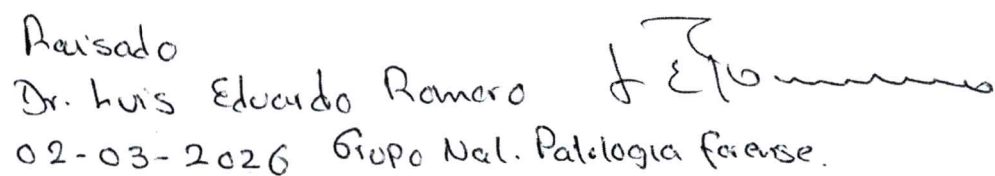 Revisado
Dr. Luis Eduardo Romero
02-03-2026 Grupo Nal. Patología forense.